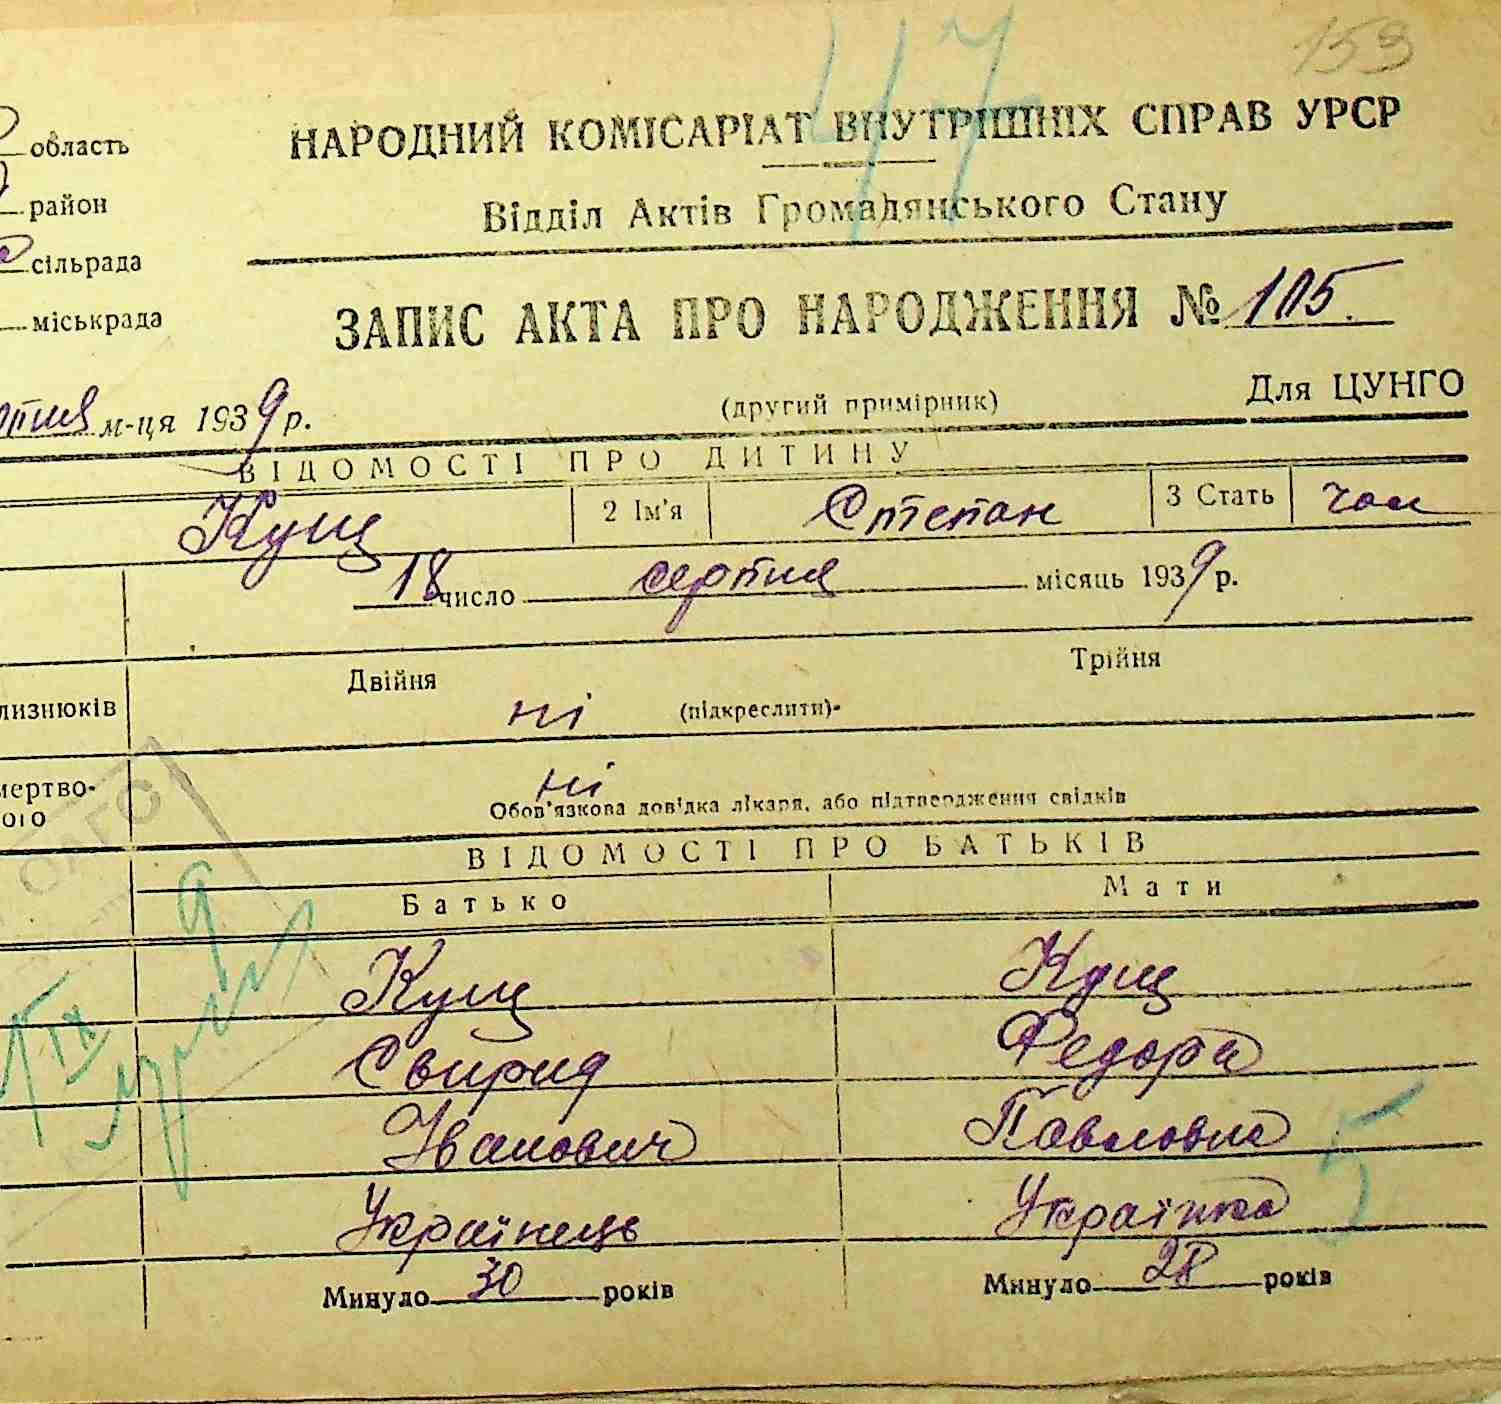 47
153
область
НАРОДНИЙ КОМІСАРІАТ ВНУТРІШНІХ СПРАВ УРСР
район
Відділ Актів Громадянського Стану
сільрада
міськрада
ЗАПИС АКТА ПРО НАРОДЖЕННЯ № 105.
Для ЦУНГО
м-ця 1939 р.
(другий примірник)
ВІДОМОСТІ ПРО ДИТИНУ
Кущ 2 Ім'я Степан 3 Стать чол
18 число серпня місяць 1939 р.
Двійня Трійня
лизнюків ні (підкреслити)
мертво-
ого ні
Обов'язкова довідка лікаря, або підтвердження свідків
ОАГС
ВІДОМОСТІ ПРО БАТЬКІВ
Батько Мати
Кущ Кущ
Свирид Федора
Іванович Павловна
Українець Українка
5
Минуло 30 років Минуло 28 років